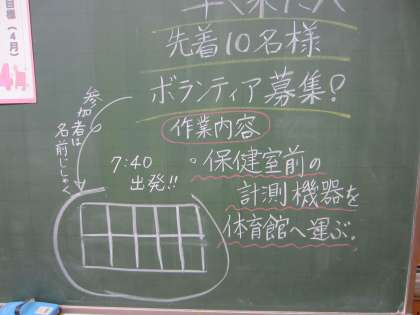 早く来た人
先着10名様
ボランティア募集?
作業内容
・保健室前の
計測機器を
体育館へ運ぶ。
7:40
出発!!
参加者は
名前じしゃく
目標(4月)